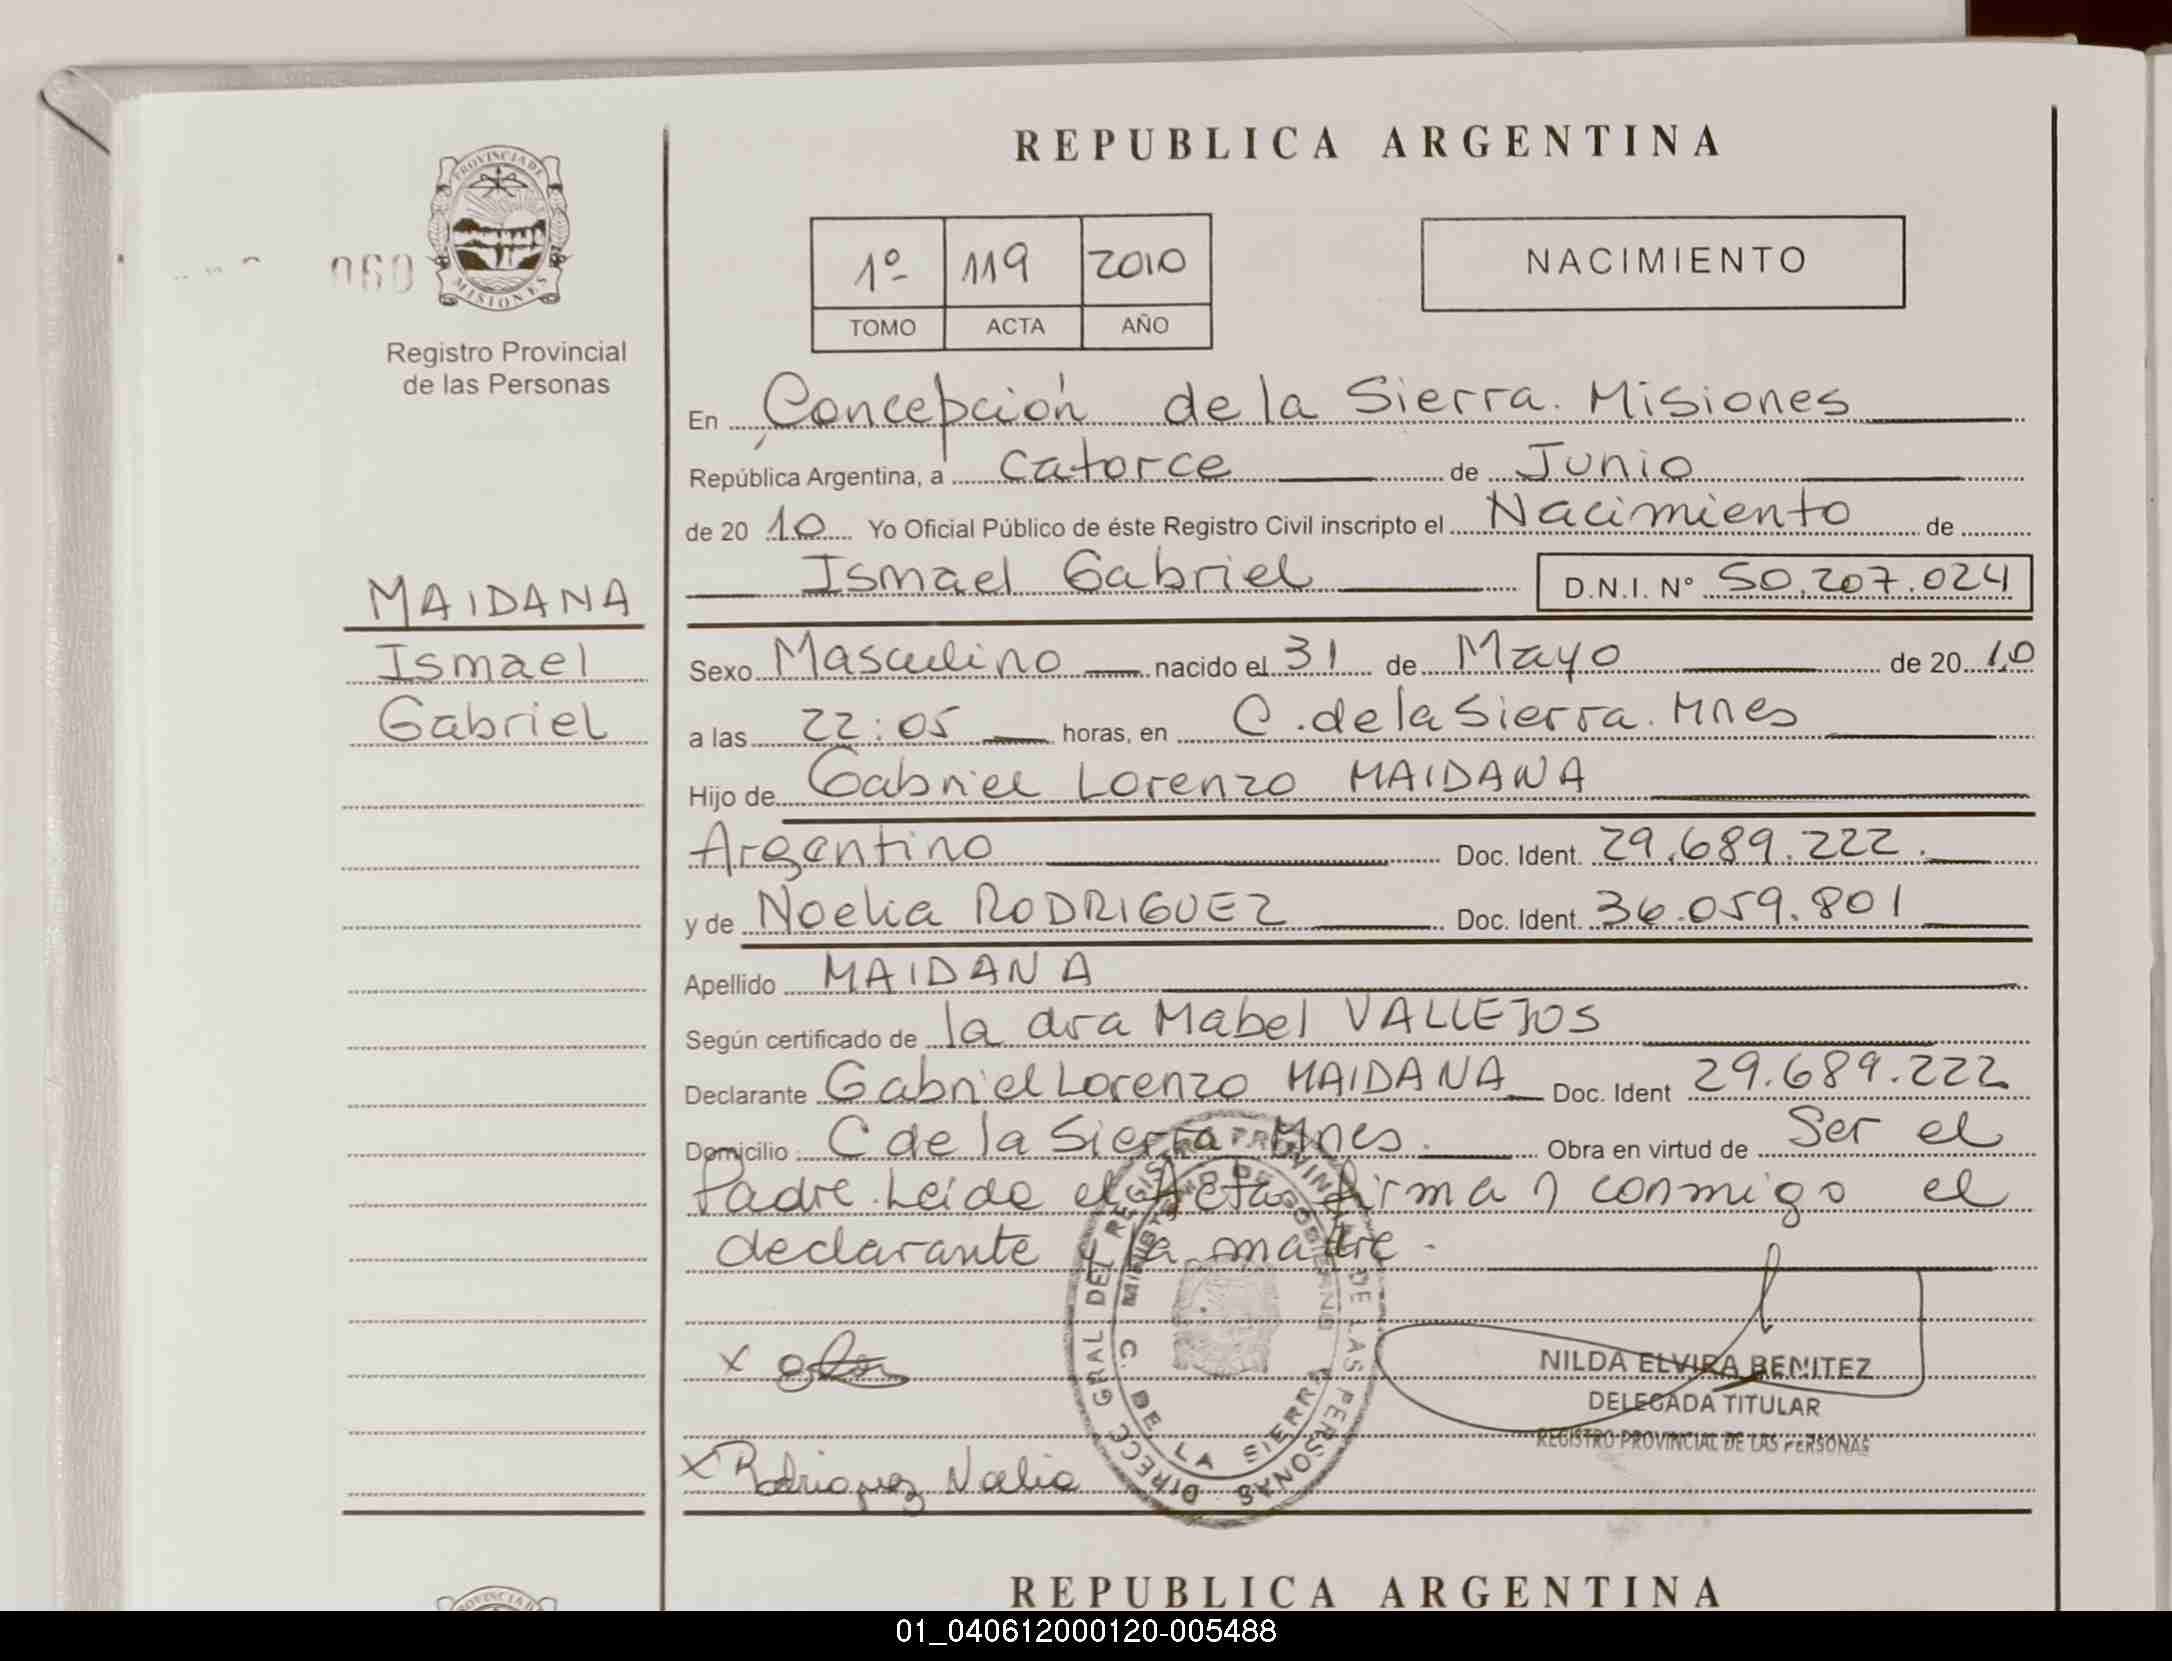 REPUBLICA ARGENTINA
PROVINCIA DE MISIONES
060
Registro Provincial
de las Personas
1º 119 2010
TOMO ACTA AÑO
NACIMIENTO
MAIDANA
Ismael
Gabriel
En Concepción de la Sierra. Misiones
República Argentina, a catorce de Junio
de 2010 Yo Oficial Público de éste Registro Civil inscripto el Nacimiento de
Ismael Gabriel D.N.I. Nº 50.207.024
Sexo Masculino nacido el 31 de Mayo de 2010
a las 22:05 horas, en C. de la Sierra. Mnes
Hijo de Gabriel Lorenzo MAIDANA
Argentino Doc. Ident. 29.689.222.
y de Noelia RODRIGUEZ Doc. Ident. 36.059.801
Apellido MAIDANA
Según certificado de la dra Mabel VALLEJOS
Declarante Gabriel Lorenzo MAIDANA Doc. Ident 29.689.222
Domicilio C de la Sierra Mnes. Obra en virtud de Ser el
Padre. Leida el Acta firman conmigo el
declarante y la madre.
DIRECC GRAL DEL REGISTRO PROVINCIAL DE LAS PERSONAS
MINISTERIO DE GOBIERNO
C. DE LA SIERRA
x
NILDA ELVIRA BENITEZ
DELEGADA TITULAR
REGISTRO PROVINCIAL DE LAS PERSONAS
x Rodriguez Noelia
REPUBLICA ARGENTINA
01_040612000120-005488